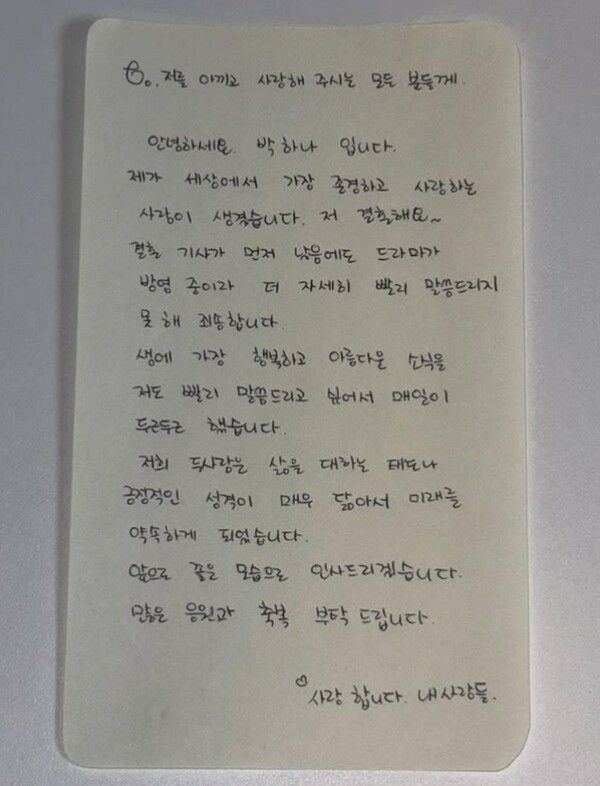 To. 저를 아끼고 사랑해 주시는 모든 분들께.
안녕하세요. 박하나 입니다.
제가 세상에서 가장 존경하고 사랑하는
사람이 생겼습니다. 저 결혼해요~
결혼 기사가 먼저 났음에도 드라마가
방영 중이라 더 자세히 빨리 말씀드리지
못 해 죄송합니다.
생에 가장 행복하고 아름다운 소식을
저도 빨리 말씀드리고 싶어서 매일이
두근두근 했습니다.
저희 두사람은 삶을 대하는 태도나
긍정적인 성격이 매우 닮아서 미래를
약속하게 되었습니다.
앞으로 좋은 모습으로 인사드리겠습니다.
많은 응원과 축복 부탁 드립니다.
♡사랑 합니다. 내사랑들.